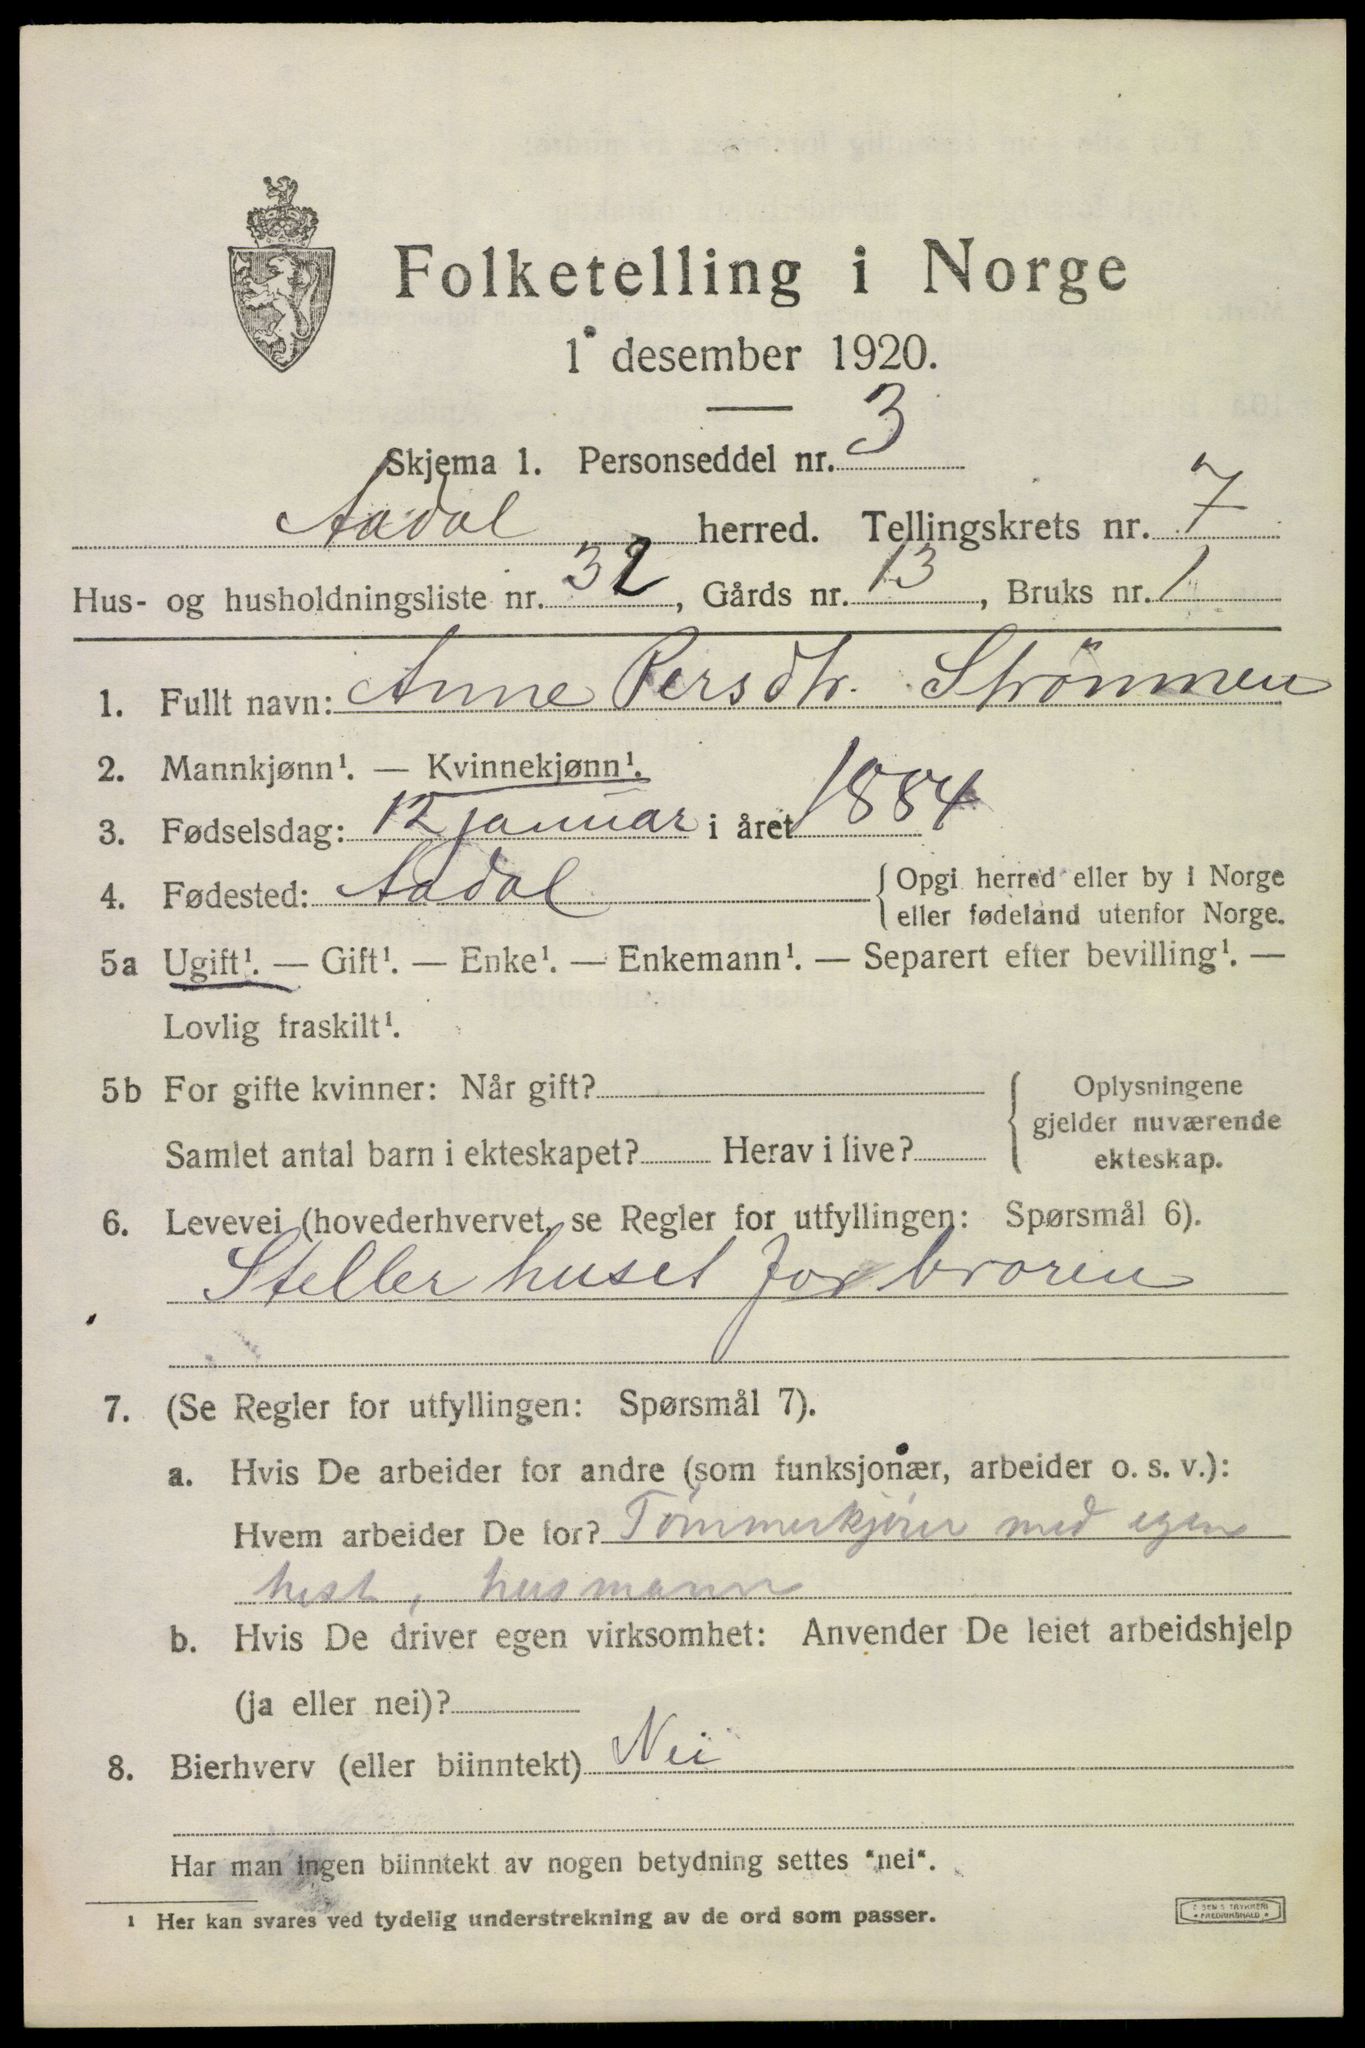 Folketelling i Norge
1° desember 1920.
Skjema 1. Personseddel nr. 3
Aadal herred. Tellingskrets nr. 7
Hus- og husholdningsliste nr. 32, Gårds nr. 13, Bruks nr. 1
1. Fullt navn: Anne Persdtr. Strönmen
2. Mannkjønn¹. — Kvinnekjønn¹.
3. Fødselsdag: 12 januar i året 1884
4. Fødested: Aadal {Opgi herred eller by i Norge
eller fødeland utenfor Norge.
5a Ugift¹. — Gift¹. — Enke¹. — Enkemann¹. — Separert efter bevilling¹. —
Lovlig fraskilt¹.
5b For gifte kvinner: Når gift? { Oplysningene
gjelder nuværende
Samlet antal barn i ekteskapet? Herav i live? ekteskap.
6. Levevei (hovederhvervet, se Regler for utfyllingen: Spørsmål 6).
Steller huset for broren
7. (Se Regler for utfyllingen: Spørsmål 7).
a. Hvis De arbeider for andre (som funksjonær, arbeider o. s. v.):
Hvem arbeider De for? Tømmerkjører med egen
hest, husmann
b. Hvis De driver egen virksomhet: Anvender De leiet arbeidshjelp
(ja eller nei)?
8. Bierhverv (eller biinntekt) Nei
Har man ingen biinntekt av nogen betydning settes "nei".
¹ Her kan svares ved tydelig understrekning av de ord som passer.
TRYKKERI
FREDRIKSHALD